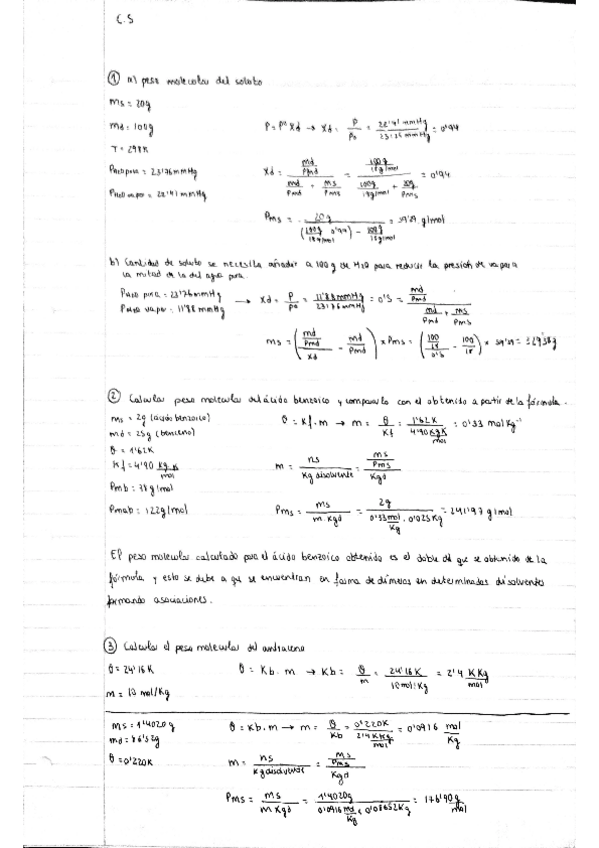 C.5
① a) peso molecular del soluto
ms = 20g
md = 100g
T = 298K
PH2O pura = 23'76 mmHg
PH2O vapor = 22'41 mmHg
P = Pº Xd → Xd = P/Pº = 22'41 mmHg / 23'76 mmHg = 0'94
Xd = (md/Pmd) / (md/Pmd + ms/Pms) = (100g / 18g/mol) / (100g / 18g/mol + 20g/Pms) = 0'94
Pms = 20g / ((100g / 18g/mol · 0'94) − 100g / 18g/mol) = 59'29 g/mol
b) Cantidad de soluto se necesita añadir a 100g de H2O para reducir la presión de vapor a
la mitad de la del agua pura.
PH2O pura = 23'76 mmHg
PH2O vapor = 11'88 mmHg
→ Xd = P/Pº = 11'88 mmHg / 23'76 mmHg = 0'5 = (md/Pmd) / (md/Pmd + ms/Pms)
ms = ((md/Pmd)/Xd − md/Pmd) × Pms = ((100/18)/0'5 − 100/18) × 59'29 = 329'38g
② Calcular peso molecular del ácido benzoico y compararlo con el obtenido a partir de la fórmula.
ms = 2g (ácido benzoico)
md = 25g (benceno)
θ = 1'62K
Kf = 4'90 Kg K / mol
Pmb = 78 g/mol
Pmab = 122g/mol
θ = Kf · m → m = θ/Kf = 1'62K / 4'90 KgK/mol = 0'33 mol Kg⁻¹
m = ns / Kg disolvente = (ms/Pms) / Kgd
Pms = ms / m · Kgd = 2g / 0'33 mol/Kg · 0'025 Kg = 241'97 g/mol
El peso molecular calculado para el ácido benzoico obtenido es el doble del que se obtenido de la
fórmula y esto se debe a que se encuentran en forma de dímeros en determinados disolventes
formando asociaciones.
③ Calcular el peso molecular del antraceno
θ = 24'16K
m = 10 mol/Kg
θ = Kb · m → Kb = θ/m = 24'16K / 10 mol/Kg = 2'4 K Kg / mol
ms = 1'4020g
md = 86'52g
θ = 0'220K
θ = Kb · m → m = θ/Kb = 0'220K / 2'4 K Kg/mol = 0'0916 mol/Kg
m = ns / Kg disolvente = (ms/Pms) / Kgd
Pms = ms / m Kgd = 1'4020g / 0'0916 mol/Kg × 0'08652 Kg = 176'90 g/mol